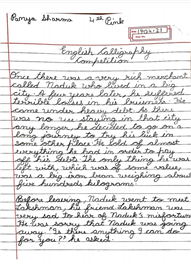 Punya Sharma 4th Pink
English Calligraphy
Competition
Once there was a very rich merchant
called Naduk who lived in a big
city. A few years later, he suffered
terrible losses in his business. He
came under heavy debt. As there
was no use staying in that city
any longer, he decided to go on a
long journey to try his luck in
some other place. He sold almost
everything he had in order to pay
off his debts. The only thing he was
left with, which was of some value,
was a big iron beam weighing about
five hundreds kilograms.
Before leaving, Naduk went to meet
Lakshman, his friend. Lakshman was
very sad to hear of Naduk's misfortune
He was sorry that Naduk was going
away. "Is there anything I can do
for you?" he asked.